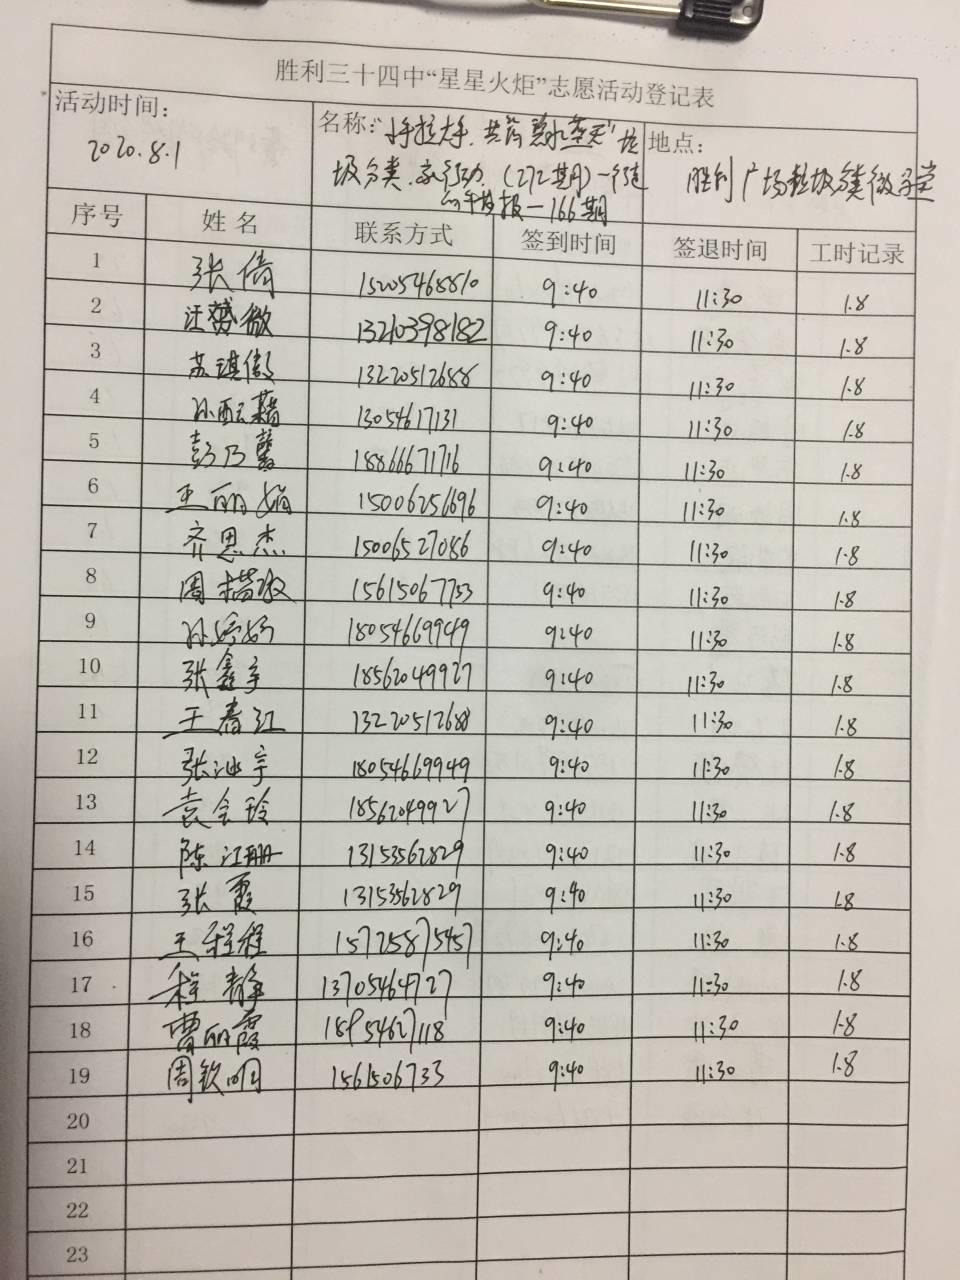 胜利三十四中“星星火炬”志愿活动登记表
活动时间:
2020.8.1
名称:“小手拉大手.共筑碧水蓝天”垃
圾分类.我行动.(272期)一行走
的手抄报一166期
地点:
胜利广场垃圾分类微学堂
序号 姓名 联系方式 签到时间 签退时间 工时记录
1 张倩 15205468810 9:40 11:30 1.8
2 汪赟微 13210398182 9:40 11:30 1.8
3 苏琪傲 13220512688 9:40 11:30 1.8
4 孙酝 13054617131 9:40 11:30 1.8
5 彭乃馨 18866671716 9:40 11:30 1.8
6 王丽娟 15006251696 9:40 11:30 1.8
7 齐思杰 15006527086 9:40 11:30 1.8
8 周 15615067733 9:40 11:30 1.8
9 孙婷婷 18054669949 9:40 11:30 1.8
10 张鑫宇 18562049927 9:40 11:30 1.8
11 王春江 13220512688 9:40 11:30 1.8
12 张 宇 18054669949 9:40 11:30 1.8
13 袁会玲 18562049927 9:40 11:30 1.8
14 陈江珊 13153562829 9:40 11:30 1.8
15 张霞 13153562829 9:40 11:30 1.8
16 王程程 15725875457 9:40 11:30 1.8
17 程静 13705464727 9:40 11:30 1.8
18 曹丽霞 18954627118 9:40 11:30 1.8
19 周钦明 1561506733 9:40 11:30 1.8
20
21
22
23